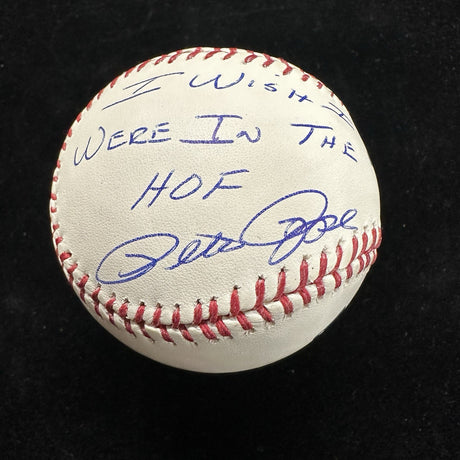 I WISH I
WERE IN THE
HOF
Pete Rose